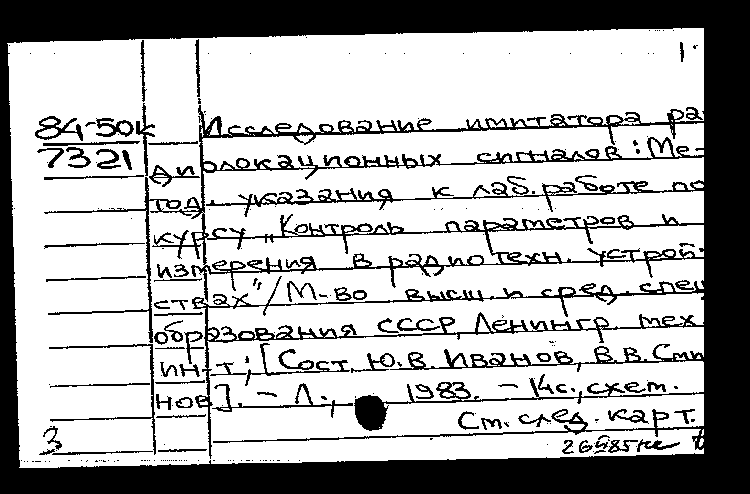 1.
84-50к Исследование имитатора ра
7321 диолокационных сигналов: Ме-
тод. указания к лаб. работе по
курсу „Контроль параметров и
измерения в радиотехн. устрой-
ствах"/М-во высш. и сред. спец
образования СССР, Ленингр. тех
ин-т; [Сост. Ю.В. Иванов, В.В. Сми
нов]. - Л., 1983. - 14с., схем.
См. след. карт.
3